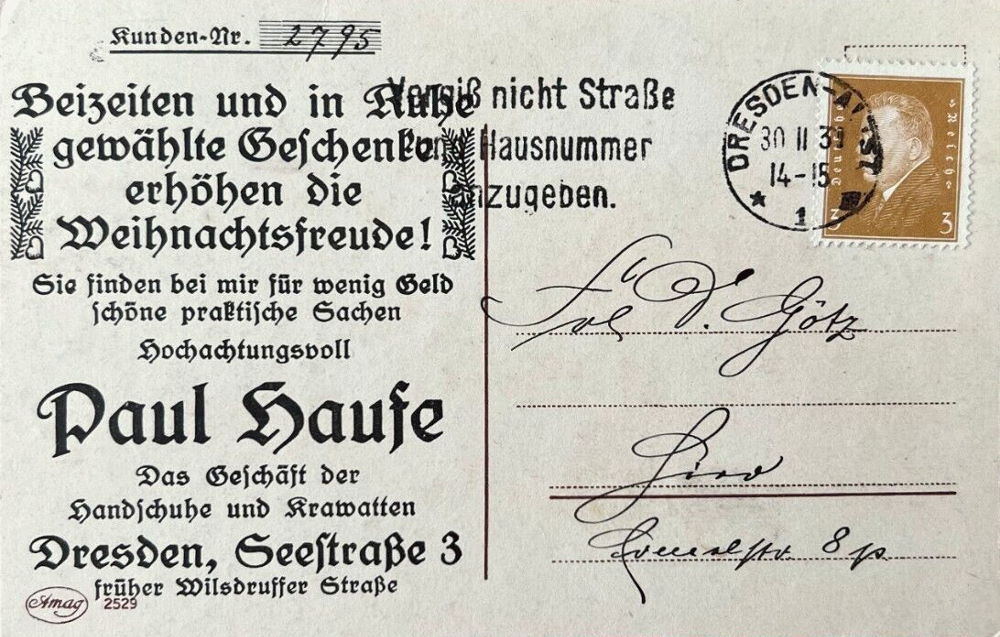 Kunden-Nr. 2795
Beizeiten und in Ruhe
gewählte Geschenke
erhöhen die
Weihnachtsfreude!
Sie finden bei mir für wenig Geld
schöne praktische Sachen
Hochachtungsvoll
Paul Haufe
Das Geschäft der
Handschuhe und Krawatten
Dresden, Seestraße 3
früher Wilsdruffer Straße
Amag 2529
Vergiß nicht Straße
und Hausnummer
anzugeben.
DRESDEN-ALTST
30 11 30
14-15
1
Deutsches Reich
3 3
Frl D. Götz
Hier
8 p